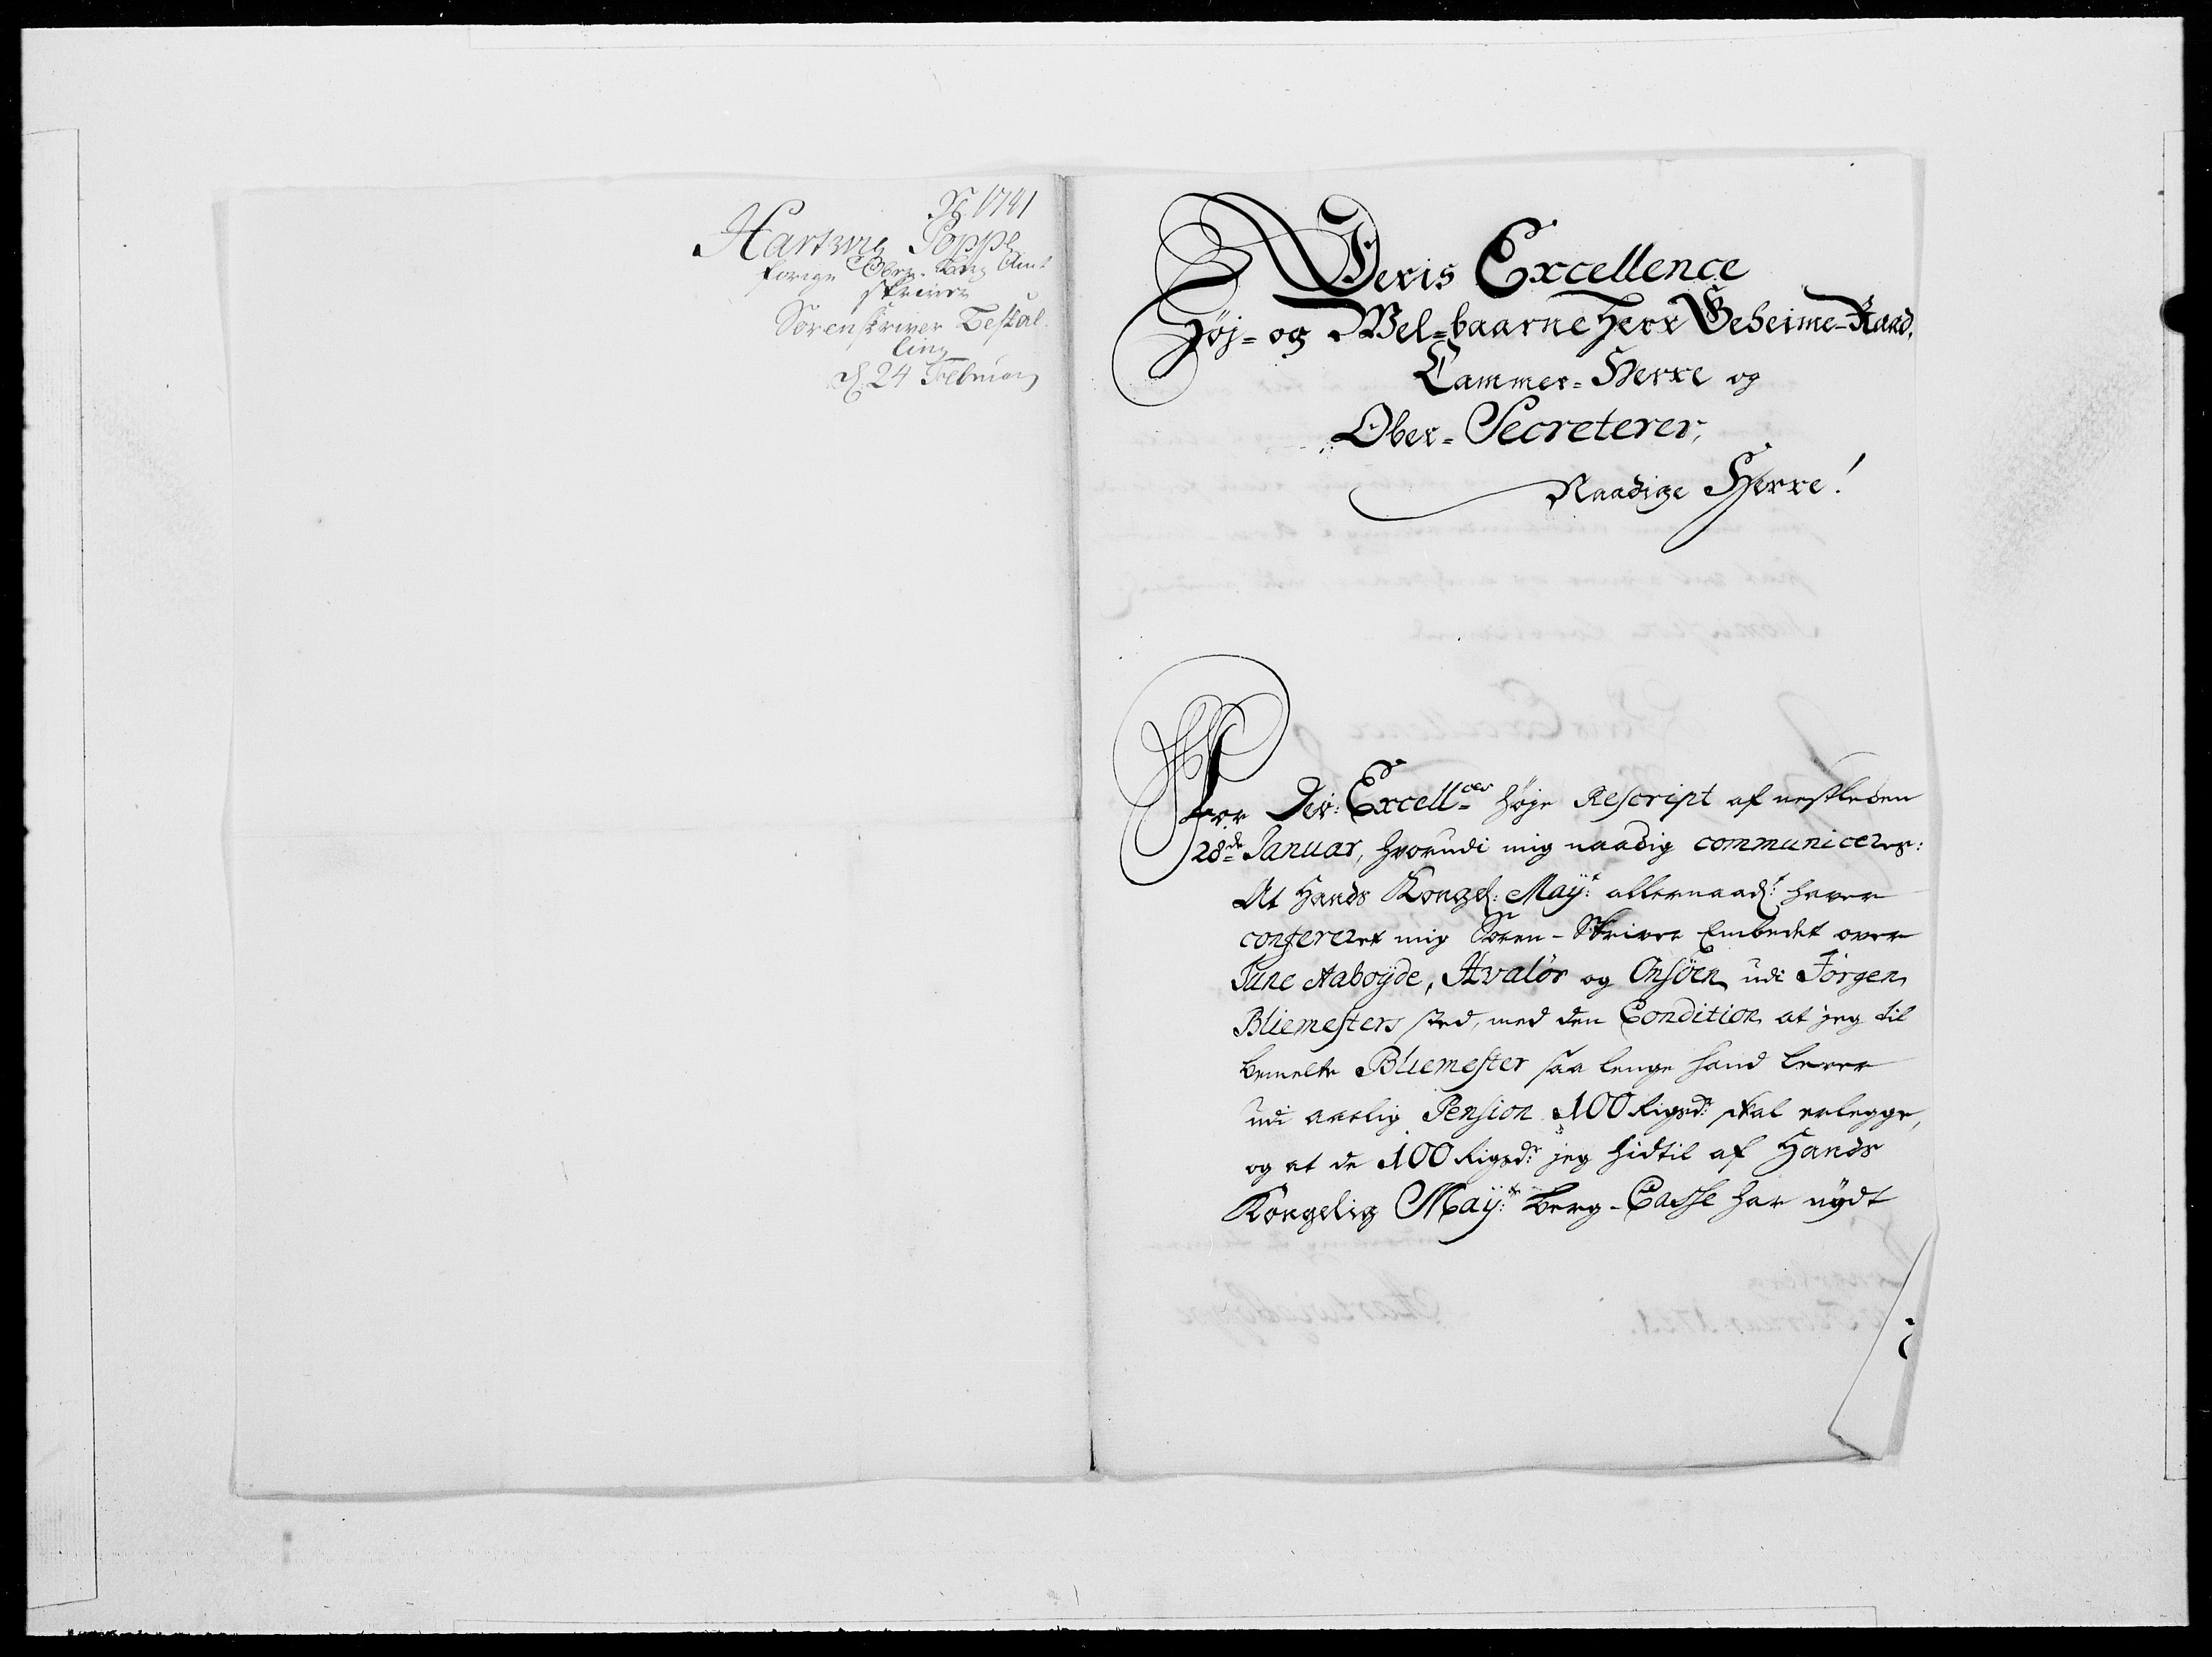 1741
Hartvig Poppe
forige Ober-Berg Amt
skriver
Sorenskriver Bestal
ling
d. 24 Februarj
Deris Excellence
Høj- og Wel-baarne Herr Geheime-Raad,
Cammer-Herre og
Ober-Secreterer,
Naadige Herre!
For Der: Excell:ces høje Rescript af nestleden
28de Januar, hvorudi mig naadig communiceres:
At Hands Kongel: May:t allernaad:t haver
confereret mig Soren-Skriver Embedet over
Tune Aaboyde, Hvalör og Onsöen udi Jörgen
Bliemesters sted, med den Condition at jeg til
bemelte Bliemester saa lenge hand lever
udi aarlig Pension 100 Rigsd:r skal erlegge,
og at de 100 Rigsd:r jeg hidtil af Hands
Kongelig May:ts Berg-Casse har nydt